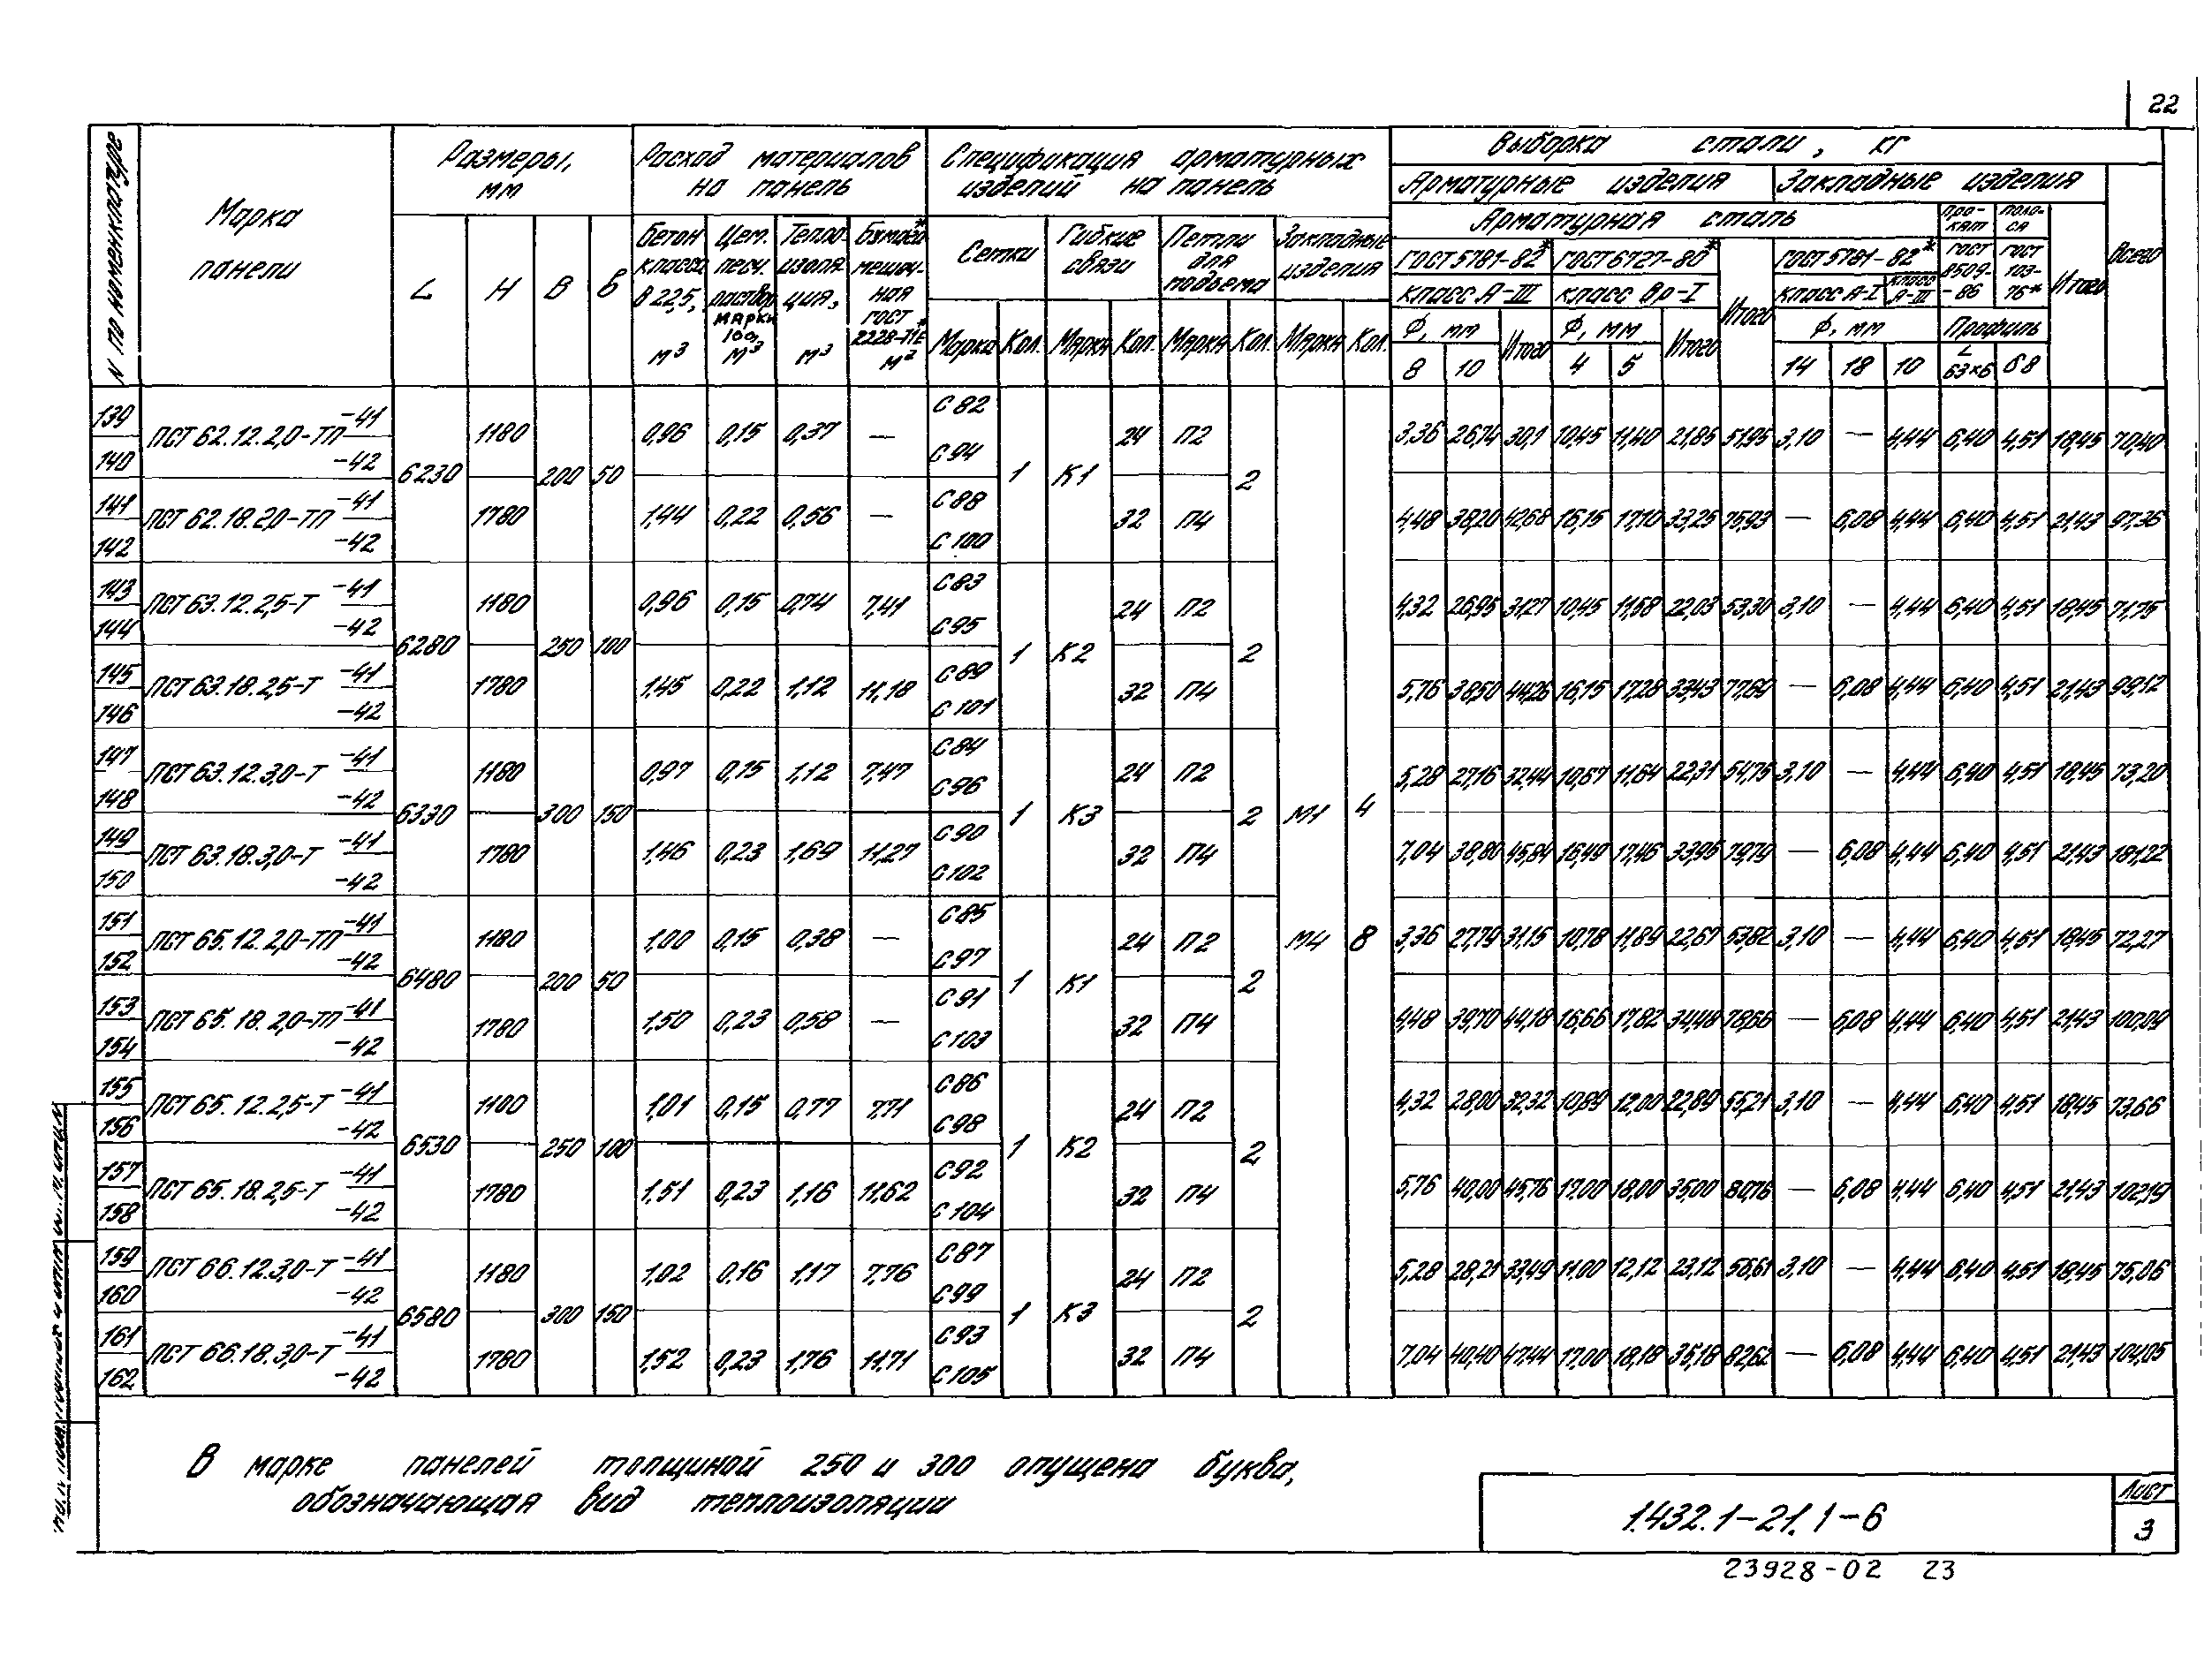 22
N по номенклатуре
Марка панели
Размеры, мм
Расход материалов на панель
Спецификация арматурных изделий на панель
Выборка стали, кг
Арматурные изделия Закладные изделия Всего
Арматурная сталь Про-кат Поло-са
L H B б
Бетон класса В 22,5, м³
Цем. песч. раствор марки 100, м³
Тепло-изоля-ция, м³
Бумага* мешоч-ная ГОСТ 2228-71Е* м²
Сетки Гибкие связи Петли для подъема Закладные изделия
Марка Кол. Марка Кол. Марка Кол. Марка Кол.
ГОСТ 5781-82* ГОСТ 6727-80* Итого ГОСТ 5781-82* ГОСТ 8509-86 ГОСТ 103-76* Итого
класс А-III класс Вр-I класс А-I класс А-III
Ф, мм Итого Ф, мм Итого Ф, мм Профиль
8 10 4 5 14 18 10 L 63×6 68
139 140 ПСТ 62.12.2,0-ТП -41 -42 1180 0,96 0,15 0,37 — С 82 С 94 24 П2 3,36 26,74 30,1 10,45 11,40 21,85 51,95 3,10 — 4,44 6,40 4,51 18,45 70,40
6230 200 50 1 К1 2
141 142 ПСТ 62.18.2,0-ТП -41 -42 1780 1,44 0,22 0,56 — С 88 С 100 32 П4 4,48 38,20 42,68 16,15 17,10 33,25 75,93 — 6,08 4,44 6,40 4,51 21,43 97,36
143 144 ПСТ 63.12.2,5-Т -41 -42 1180 0,96 0,15 0,74 7,41 С 83 С 95 24 П2 4,32 26,95 31,27 10,45 11,58 22,03 53,30 3,10 — 4,44 6,40 4,51 18,45 71,75
6280 250 100 1 К2 2
145 146 ПСТ 63.18.2,5-Т -41 -42 1780 1,45 0,22 1,12 11,18 С 89 С 101 32 П4 5,76 38,50 44,26 16,15 17,28 33,43 77,69 — 6,08 4,44 6,40 4,51 21,43 99,12
147 148 ПСТ 63.12.3,0-Т -41 -42 1180 0,97 0,15 1,12 7,47 С 84 С 96 24 П2 5,28 27,16 32,44 10,67 11,64 22,31 54,75 3,10 — 4,44 6,40 4,51 18,45 73,20
6330 300 150 1 К3 2 М1 4
149 150 ПСТ 63.18.3,0-Т -41 -42 1780 1,46 0,23 1,69 11,27 С 90 С 102 32 П4 7,04 38,80 45,84 16,49 17,46 33,95 79,79 — 6,08 4,44 6,40 4,51 21,43 181,22
151 152 ПСТ 65.12.2,0-ТП -41 -42 1180 1,00 0,15 0,38 — С 85 С 97 24 П2 М4 8 3,36 27,79 31,15 10,78 11,89 22,67 53,82 3,10 — 4,44 6,40 4,51 18,45 72,27
6480 200 50 1 К1 2
153 154 ПСТ 65.18.2,0-ТП -41 -42 1780 1,50 0,23 0,58 — С 91 С 103 32 П4 4,48 39,70 44,18 16,66 17,82 34,48 78,66 — 6,08 4,44 6,40 4,51 21,43 100,09
155 156 ПСТ 65.12.2,5-Т -41 -42 1180 1,01 0,15 0,77 7,71 С 86 С 98 24 П2 4,32 28,00 32,32 10,89 12,00 22,89 55,21 3,10 — 4,44 6,40 4,51 18,45 73,66
6530 250 100 1 К2 2
157 158 ПСТ 65.18.2,5-Т -41 -42 1780 1,51 0,23 1,16 11,62 С 92 С 104 32 П4 5,76 40,00 45,76 17,00 18,00 35,00 80,76 — 6,08 4,44 6,40 4,51 21,43 102,19
159 160 ПСТ 66.12.3,0-Т -41 -42 1180 1,02 0,16 1,17 7,76 С 87 С 99 24 П2 5,28 28,21 33,49 11,00 12,12 23,12 56,61 3,10 — 4,44 6,40 4,51 18,45 75,06
6580 300 150 1 К3 2
161 162 ПСТ 66.18.3,0-Т -41 -42 1780 1,52 0,23 1,76 11,71 С 93 С 105 32 П4 7,04 40,40 47,44 17,00 18,18 35,18 82,62 — 6,08 4,44 6,40 4,51 21,43 104,05
В марке панелей толщиной 250 и 300 опущена буква,
обозначающая вид теплоизоляции
1.432.1-21.1-6
Лист
3
23928-02 23